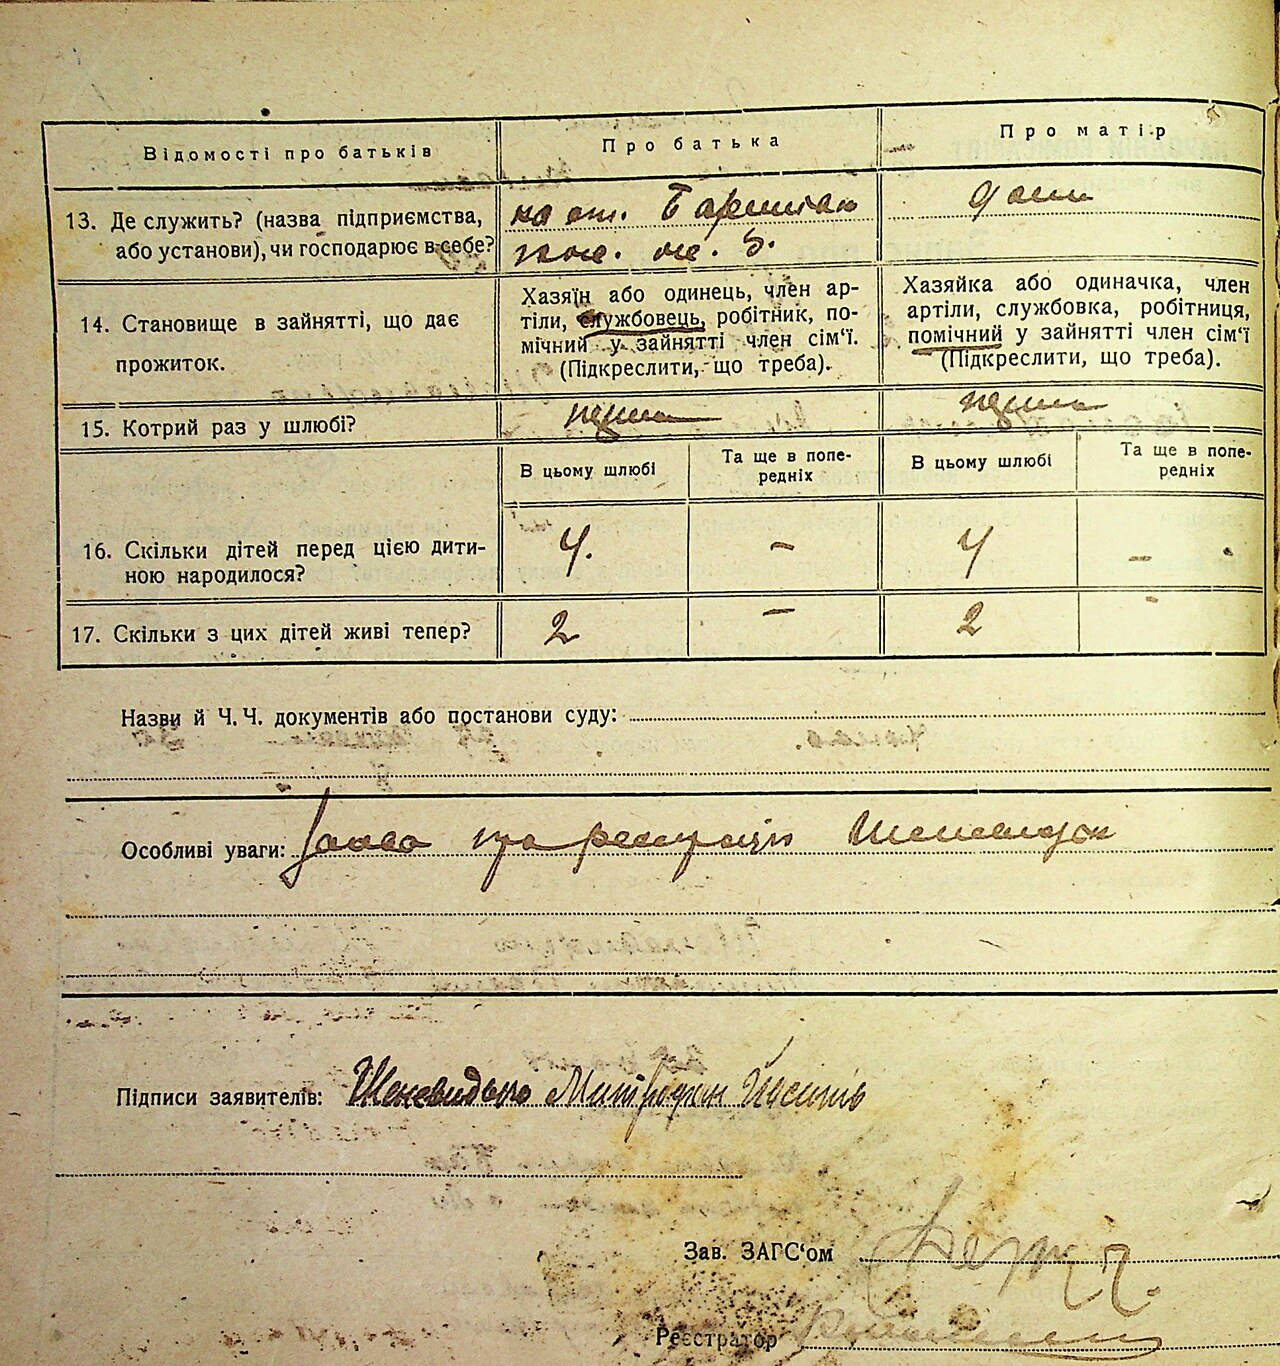 Відомості про батьків
Про батька
Про матір
13. Де служить? (назва підприємства,
або установи), чи господарює в себе?
на ст.
дома
14. Становище в зайнятті, що дає
прожиток.
Хазяїн або одинець, член ар-
тіли, службовець, робітник, по-
мічний у зайнятті член сім‘ї.
(Підкреслити, що треба).
Хазяйка або одиначка, член
артіли, службовка, робітниця,
помічний у зайнятті член сім‘ї
(Підкреслити, що треба).
15. Котрий раз у шлюбі?
В цьому шлюбі
Та ще в попе-
редніх
В цьому шлюбі
Та ще в попе-
редніх
16. Скільки дітей перед цією дити-
ною народилося?
4. – 4 –
17. Скільки з цих дітей живі тепер?
2 – 2 –
Назви й Ч. Ч. документів або постанови суду:
Особливі уваги: про
Підписи заявителів: Шеневидько Митрофан
Зав. ЗАГС‘ом
Реєстратор